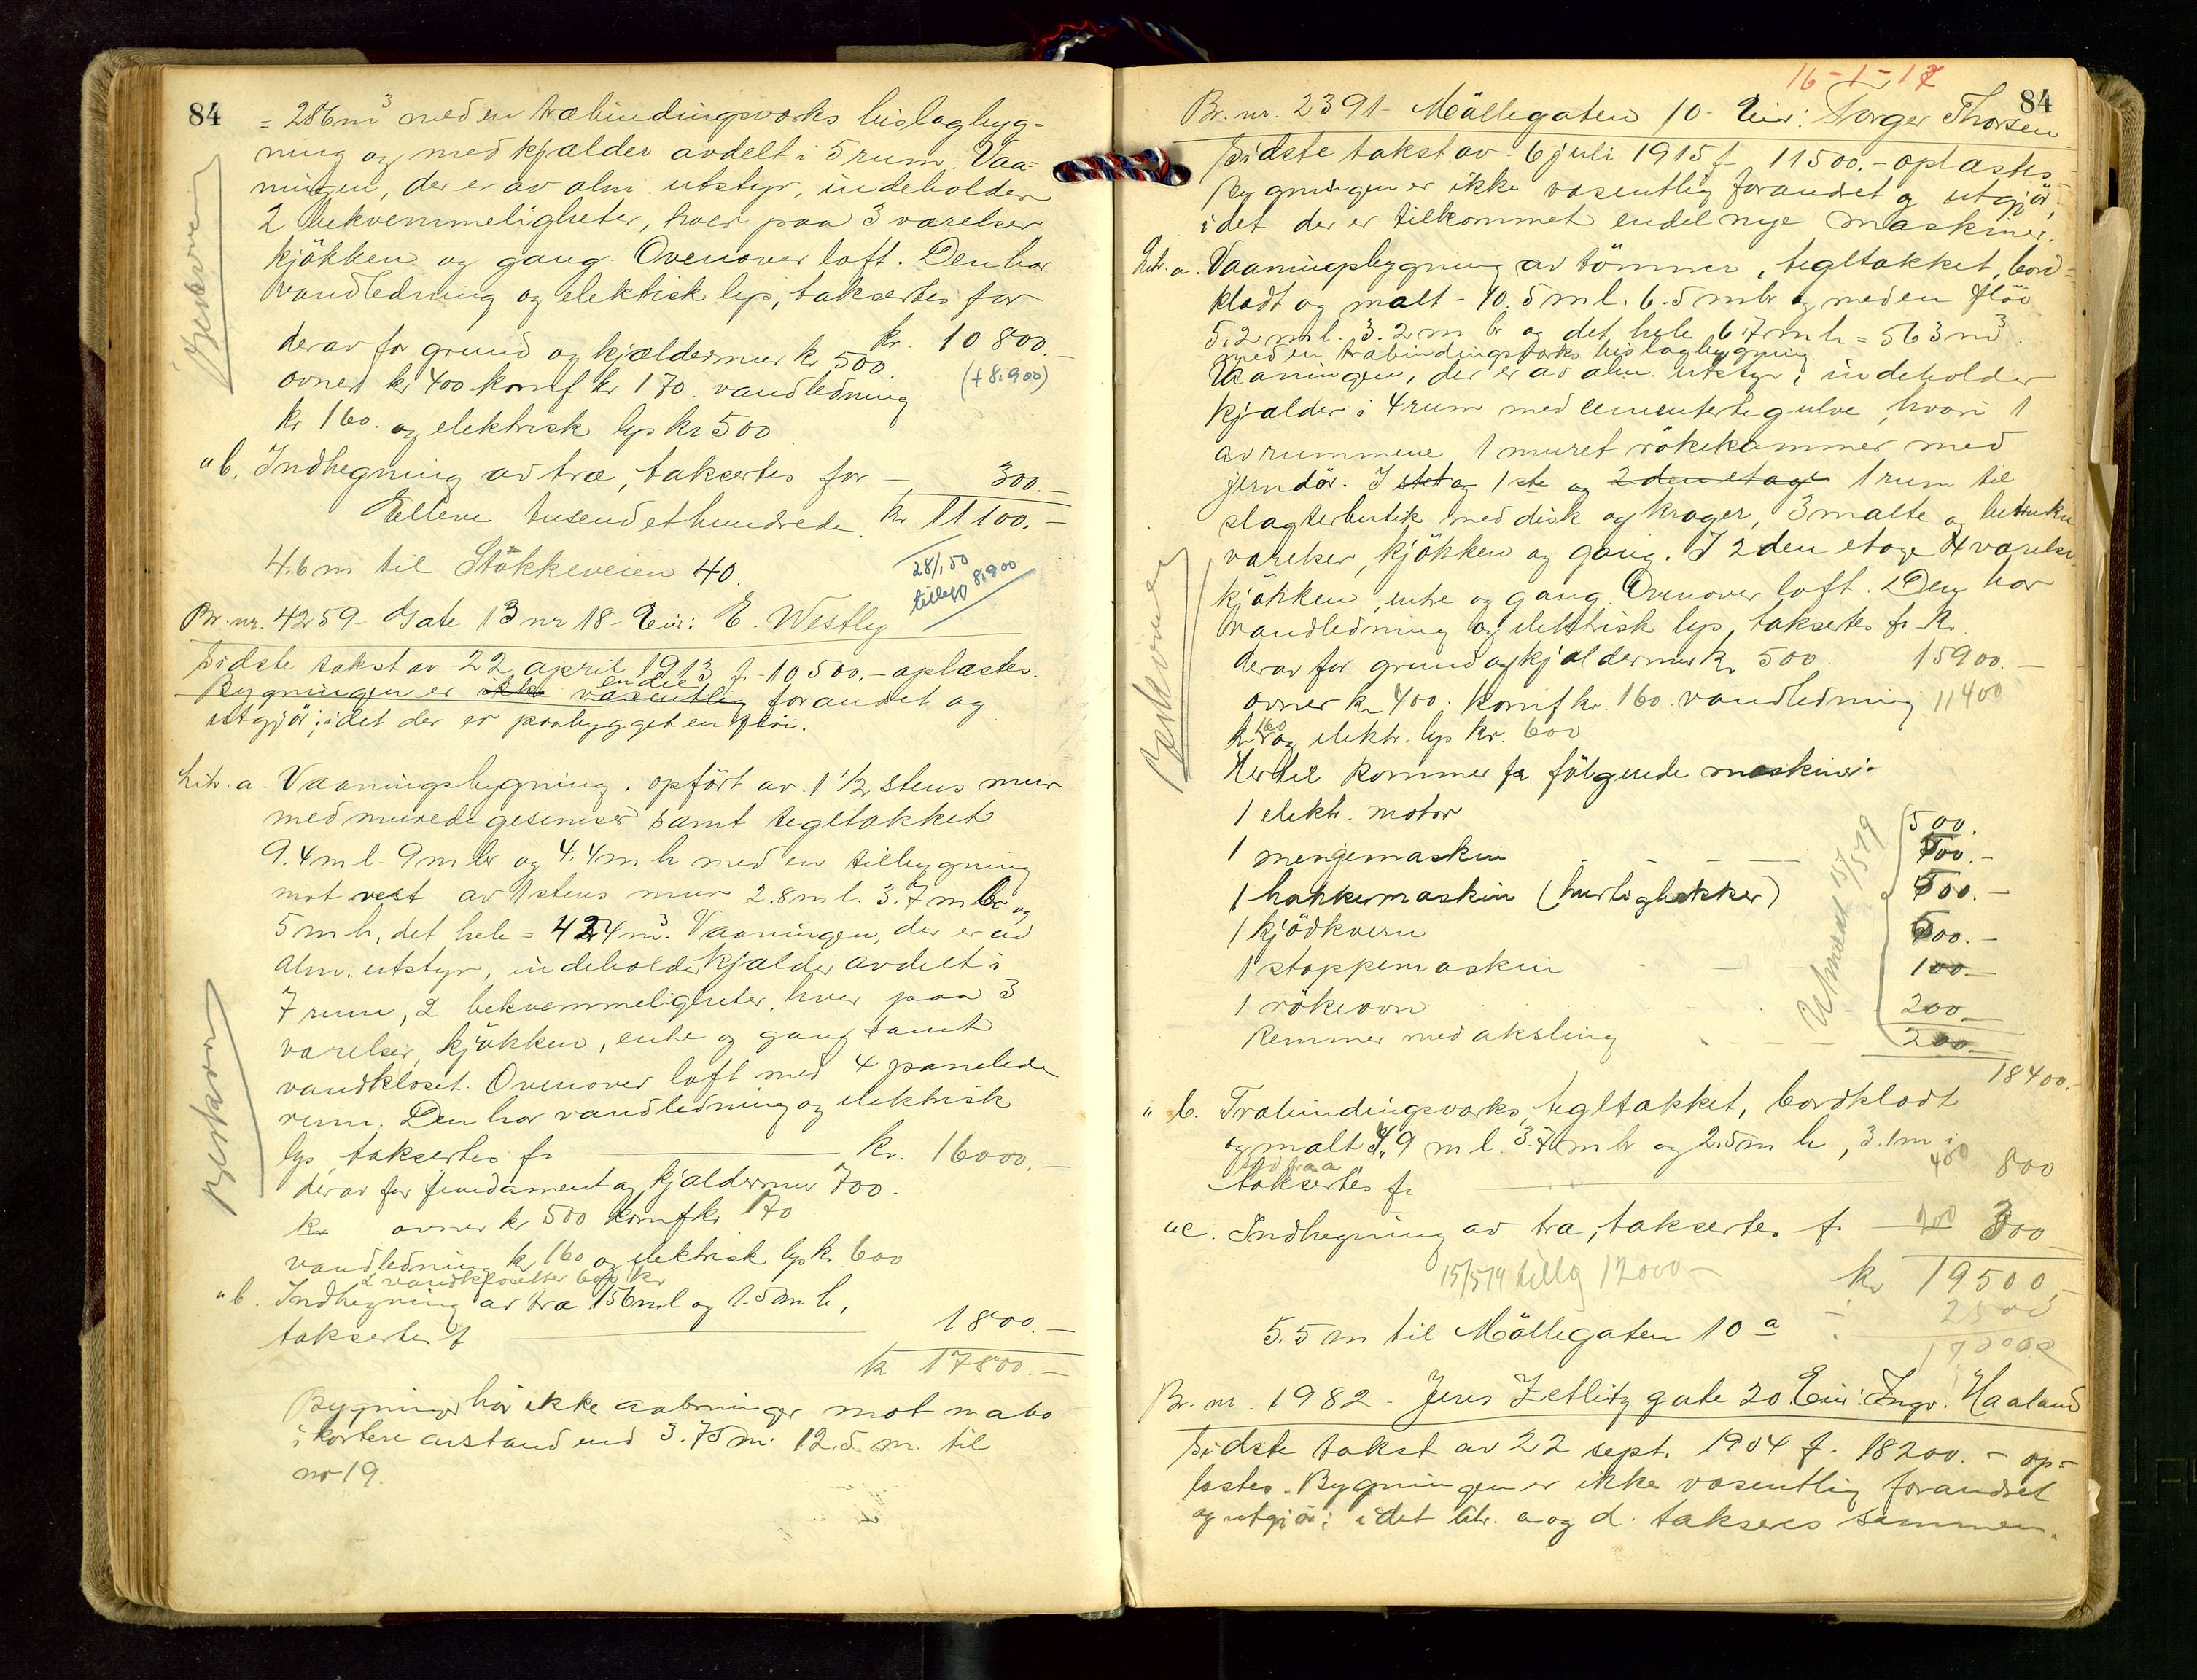 84
= 286 m³ med en træbindingsværks bislagbyg-
ning og med kjælder avdelt i 5 rum. Vaa-
ningen, der er av alm. utstyr, indeholder
2 bekvemmeligheter, hver paa 3 værelser
kjökken og gang. Ovenover loft. Den har
vandledning og elektisk lys, taksertes for
kr. 10800.-
derav for grund og kjældermur kr 500.
(+ 8.900)
ovner kr 400 komf kr 170. vandledning
kr 160. og elektrisk lys kr 500
"b. Indhegning av træ, taksertes for - 300.-
Elleve tusend et hundrede. kr 11100.-
4.6 m til Stökkeveien 40.
28/1.50
tillegg 8900
Br. nr. 4259 - Gate 13 nr 18 - Eier: E. Westly
Sidste takst av 22 april 1913 fr 10,500.- oplæstes.
Bygningen er ikke endel væsentlig forandret og
utgjör; idet der er paabygget en flöi.
Litr. a. Vaaningsbygning, opfört av 1 1/2 stens mur
med murede gesimser samt tegltækket
9.4 m l. 9 m br og 4.4 m h med en tilbygning
mot vest av 1 stens mur 2.8 m l. 3.7 m br og
5 m h, det hele = 424 m³. Vaaningen, der er av
alm. utstyr, indeholder kjælder avdelt i
7 rum, 2 bekvemmeligheter, hver paa 3
værelser, kjökken, entre og gang samt
vandkloset. Ovenover loft med 4 panelede
rum. Den har vandledning og elektrisk
lys, taksertes fr kr. 16000.-
derav for fundament og kjældermur 700.
kr ovner kr 500 komf kr 170
vandledning kr 160 og elektrisk lys kr 600
2 vandklosetter kr
"b. Indhegning av træ 156 m l og 1.5 m h,
taksertes f 1800.-
kr 17800.-
Bygningen har ikke aabninger mot nabo
i kortere avstand end 3.75 m. 12.5 m. til
nr 19.
Beskrevne
Beskrevne
16-1-17
84
Br. nr. 2391 - Möllegaten 10 - Eier: Torger Thorsen
Sidste takst av 6 juli 1915 f 11500.- oplæstes
Bygningen er ikke væsentlig forandret og utgjör;
idet der er tilkommet endel nye maskiner.
Litr. a. Vaaningsbygning av tömmer, tegltækket, bord-
klædt og malt - 10.5 m l. 6.5 m br og med en flöi
5.2 m l. 3.2 m br og det hele 6.7 m h = 563 m³.
med en træbindingsværks bislagbygning
Vaaningen, der er av alm. utstyr, indeholder
kjælder i 4 rum med cementerte gulve, hvori 1
av rummene 1 muret rökekammer med
jerndör. I 1ste og 2den etage 1 rum til
slagterbutik med disk og kroger, 3 malte og betrukne
værelser, kjökken og gang. I 2den etage 4 værelser
kjökken, entre og gang. Ovenover loft. Den har
vandledning og elektrisk lys, taksertes fr kr.
derav for grund og kjældermur kr 500 15900.-
ovner kr 400. komf kr. 160. vandledning 11400
kr 160 og elektr. lys kr. 600
Hertil kommer fr fölgende maskiner:
1 elektr. motor 500.
1 mengemaskin 500.-
1 hakkemaskin (hurtighakker) 500.-
1 kjödkvern 500.-
1 stoppemaskin 100.-
1 rökeovn 200.-
Remmer med aksling 200.-
Utmeldt 15/5 19
18400.-
" b. Træbindingsværks, tegltækket, bordklædt
og malt 4.9 m l. 3.7 m br og 2.5 m h, 3.1 m i
400 800
taksertes fr
"c. Indhegning av træ, taksertes f. 200 300
15/5 19 tillæg 12000- kr 19500.-
2500
5.5 m til Möllegaten 10 a
17000
Br. nr. 1982 - Jens Zetlitz gate 20 Eier: Ingv. Haaland
Sidste takst av 22 sept. 1904 f. 18200.- op-
læstes. Bygningen er ikke væsentlig forandret
og utgjör; idet litr. a og d. takseres sammen.
Beskrevne